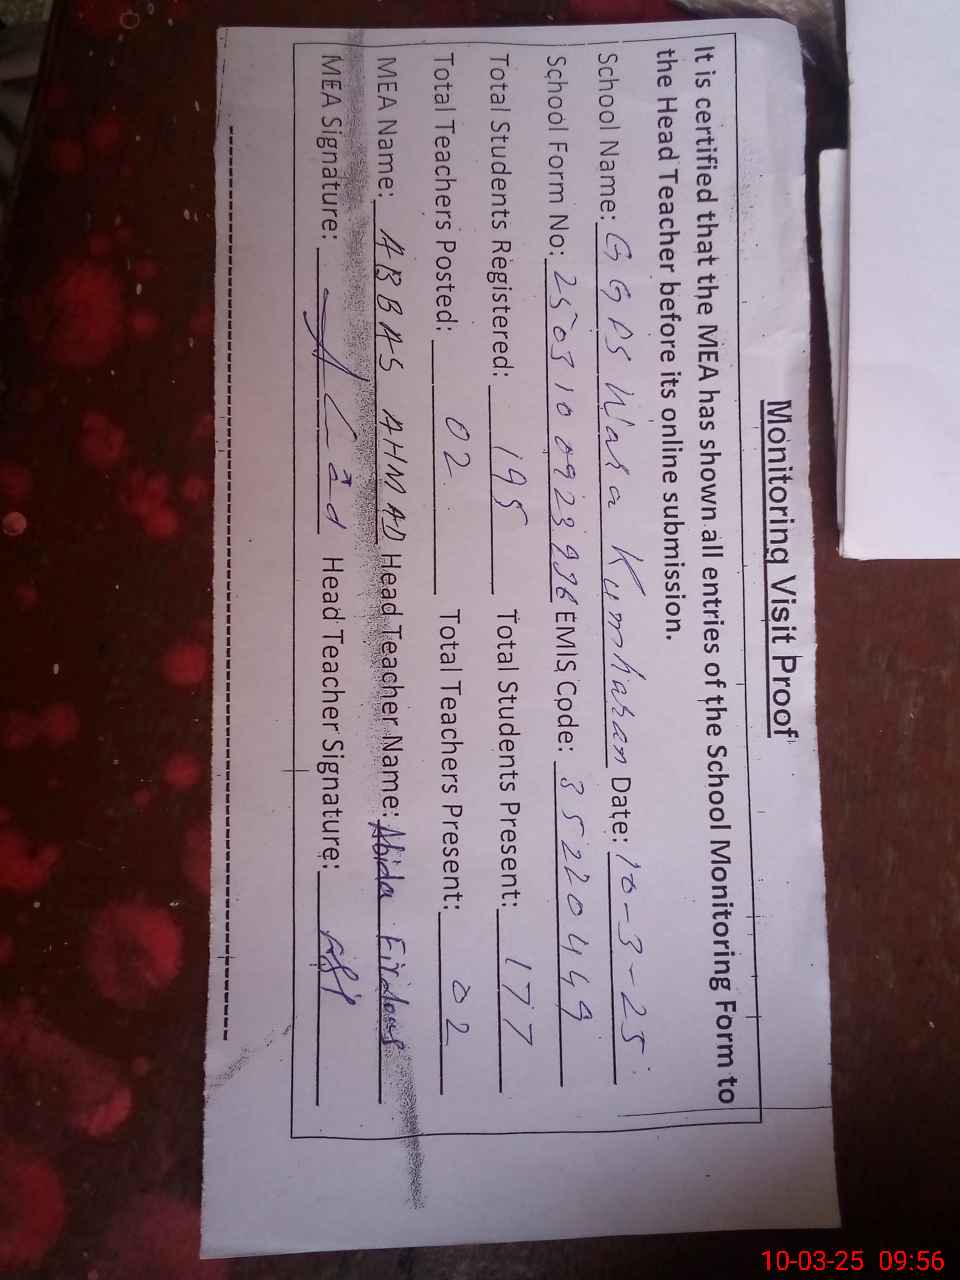 Monitoring Visit Proof
It is certified that the MEA has shown all entries of the School Monitoring Form to
the Head Teacher before its online submission.
School Name: GGPS Wara Kumharan Date: 10-3-25
School Form No: 2503100923996 EMIS Code: 35220449
Total Students Registered: 195 Total Students Present: 177
Total Teachers Posted: 02 Total Teachers Present: 02
MEA Name: ABBAS AHMAD Head Teacher Name: Abida Firdous
MEA Signature: Head Teacher Signature:
10-03-25 09:56